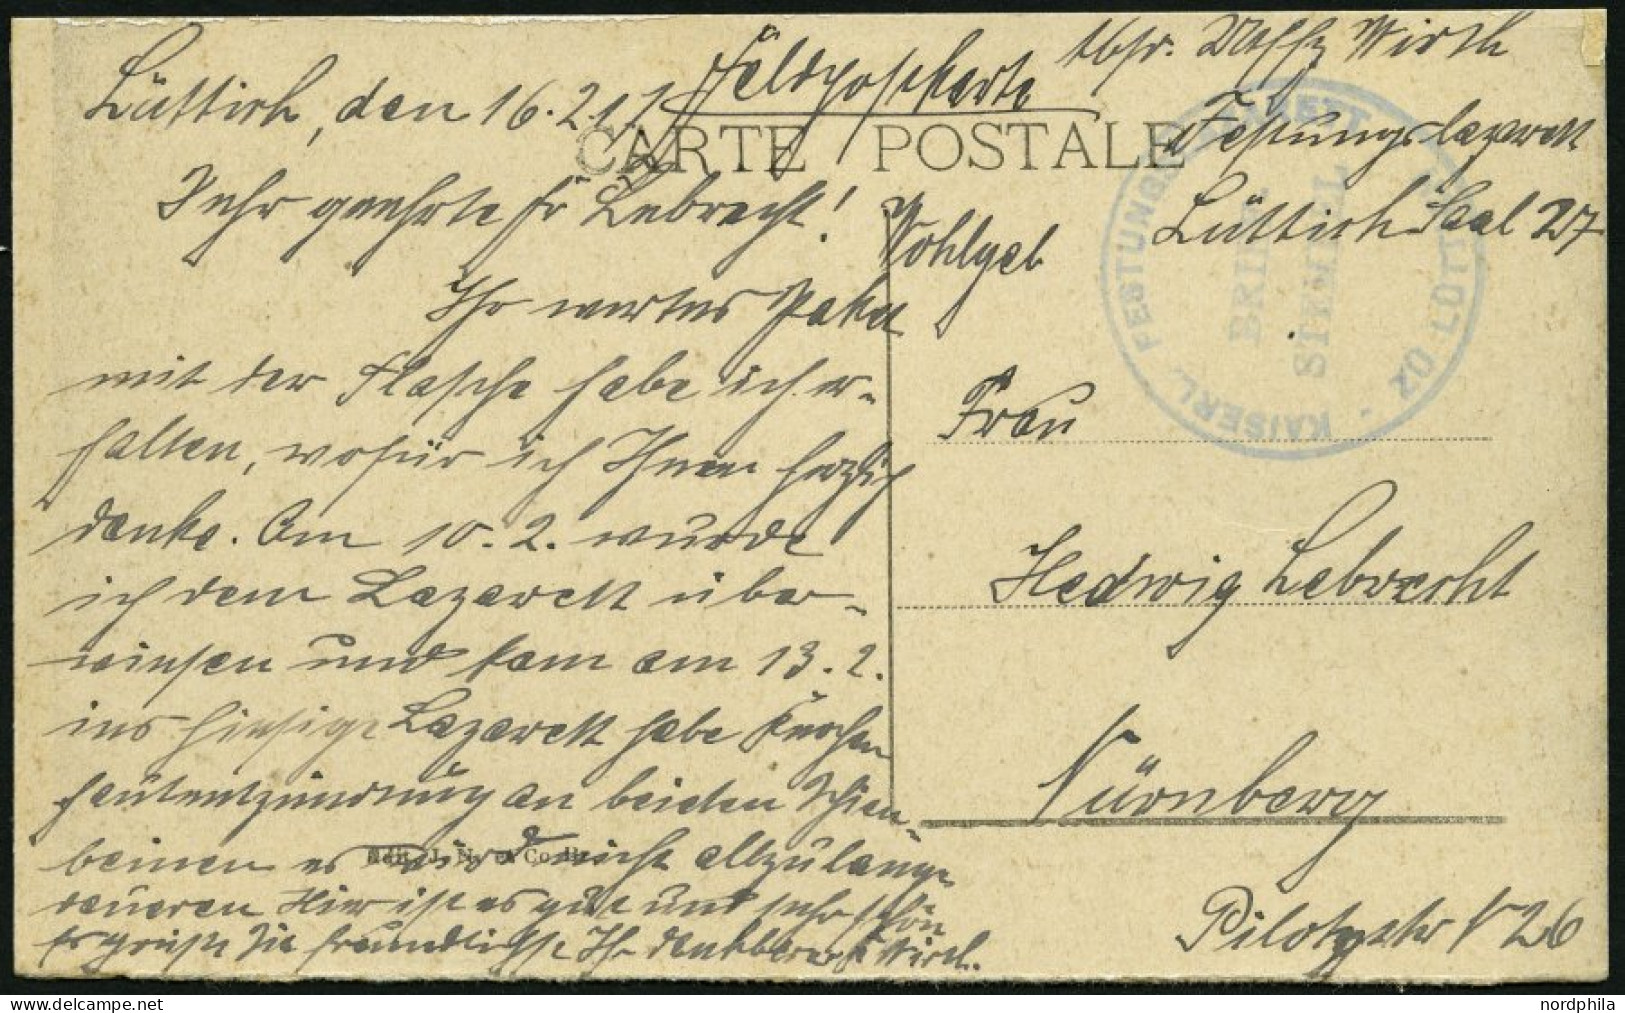 Feldpostkarte
Lüttich, den 16.2.17
CARTE POSTALE
Abs. Uffz Wirth
Festungslazarett
Lüttich Saal 27
KAISERL. FESTUNGSLAZARETT LÜTTICH
BRIEF
STEMPEL
Sehr geehrte Fr Lebrecht!
Ihr wertes Paket
mit der Flasche habe ich er-
halten, wofür ich Ihnen herzlich
danke. Am 10.2. wurde
ich dem Lazarett über-
wiesen und kam am 13.2.
ins hiesige Lazarett habe Knochen
hautentzündung an beiden Schien-
beinen es wird nicht allzulange
dauern Hier ist es gut und sehr schön
Es grüßt Sie freundlichst Ihr dankbarer F Wirth.
Wohlgeb
Frau
Hedwig Lebrecht
Nürnberg
Pilotystr N 26
nordphila